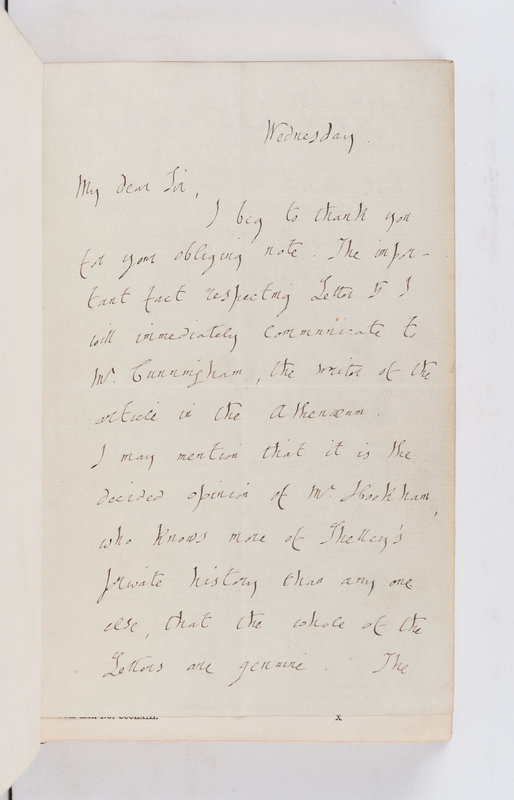 Wednesday.
My dear Sir,
I beg to thank you
for your obliging note. The impor-
tant fact respecting Letter I
will immediately communicate to
Mr. Cunningham, the writer of the
article in the Athenæum.
I may mention that it is the
decided opinion of Mr. Hookham,
who knows more of Shelley's
private history than any one
else, that the whole of the
Letters are genuine. The
X